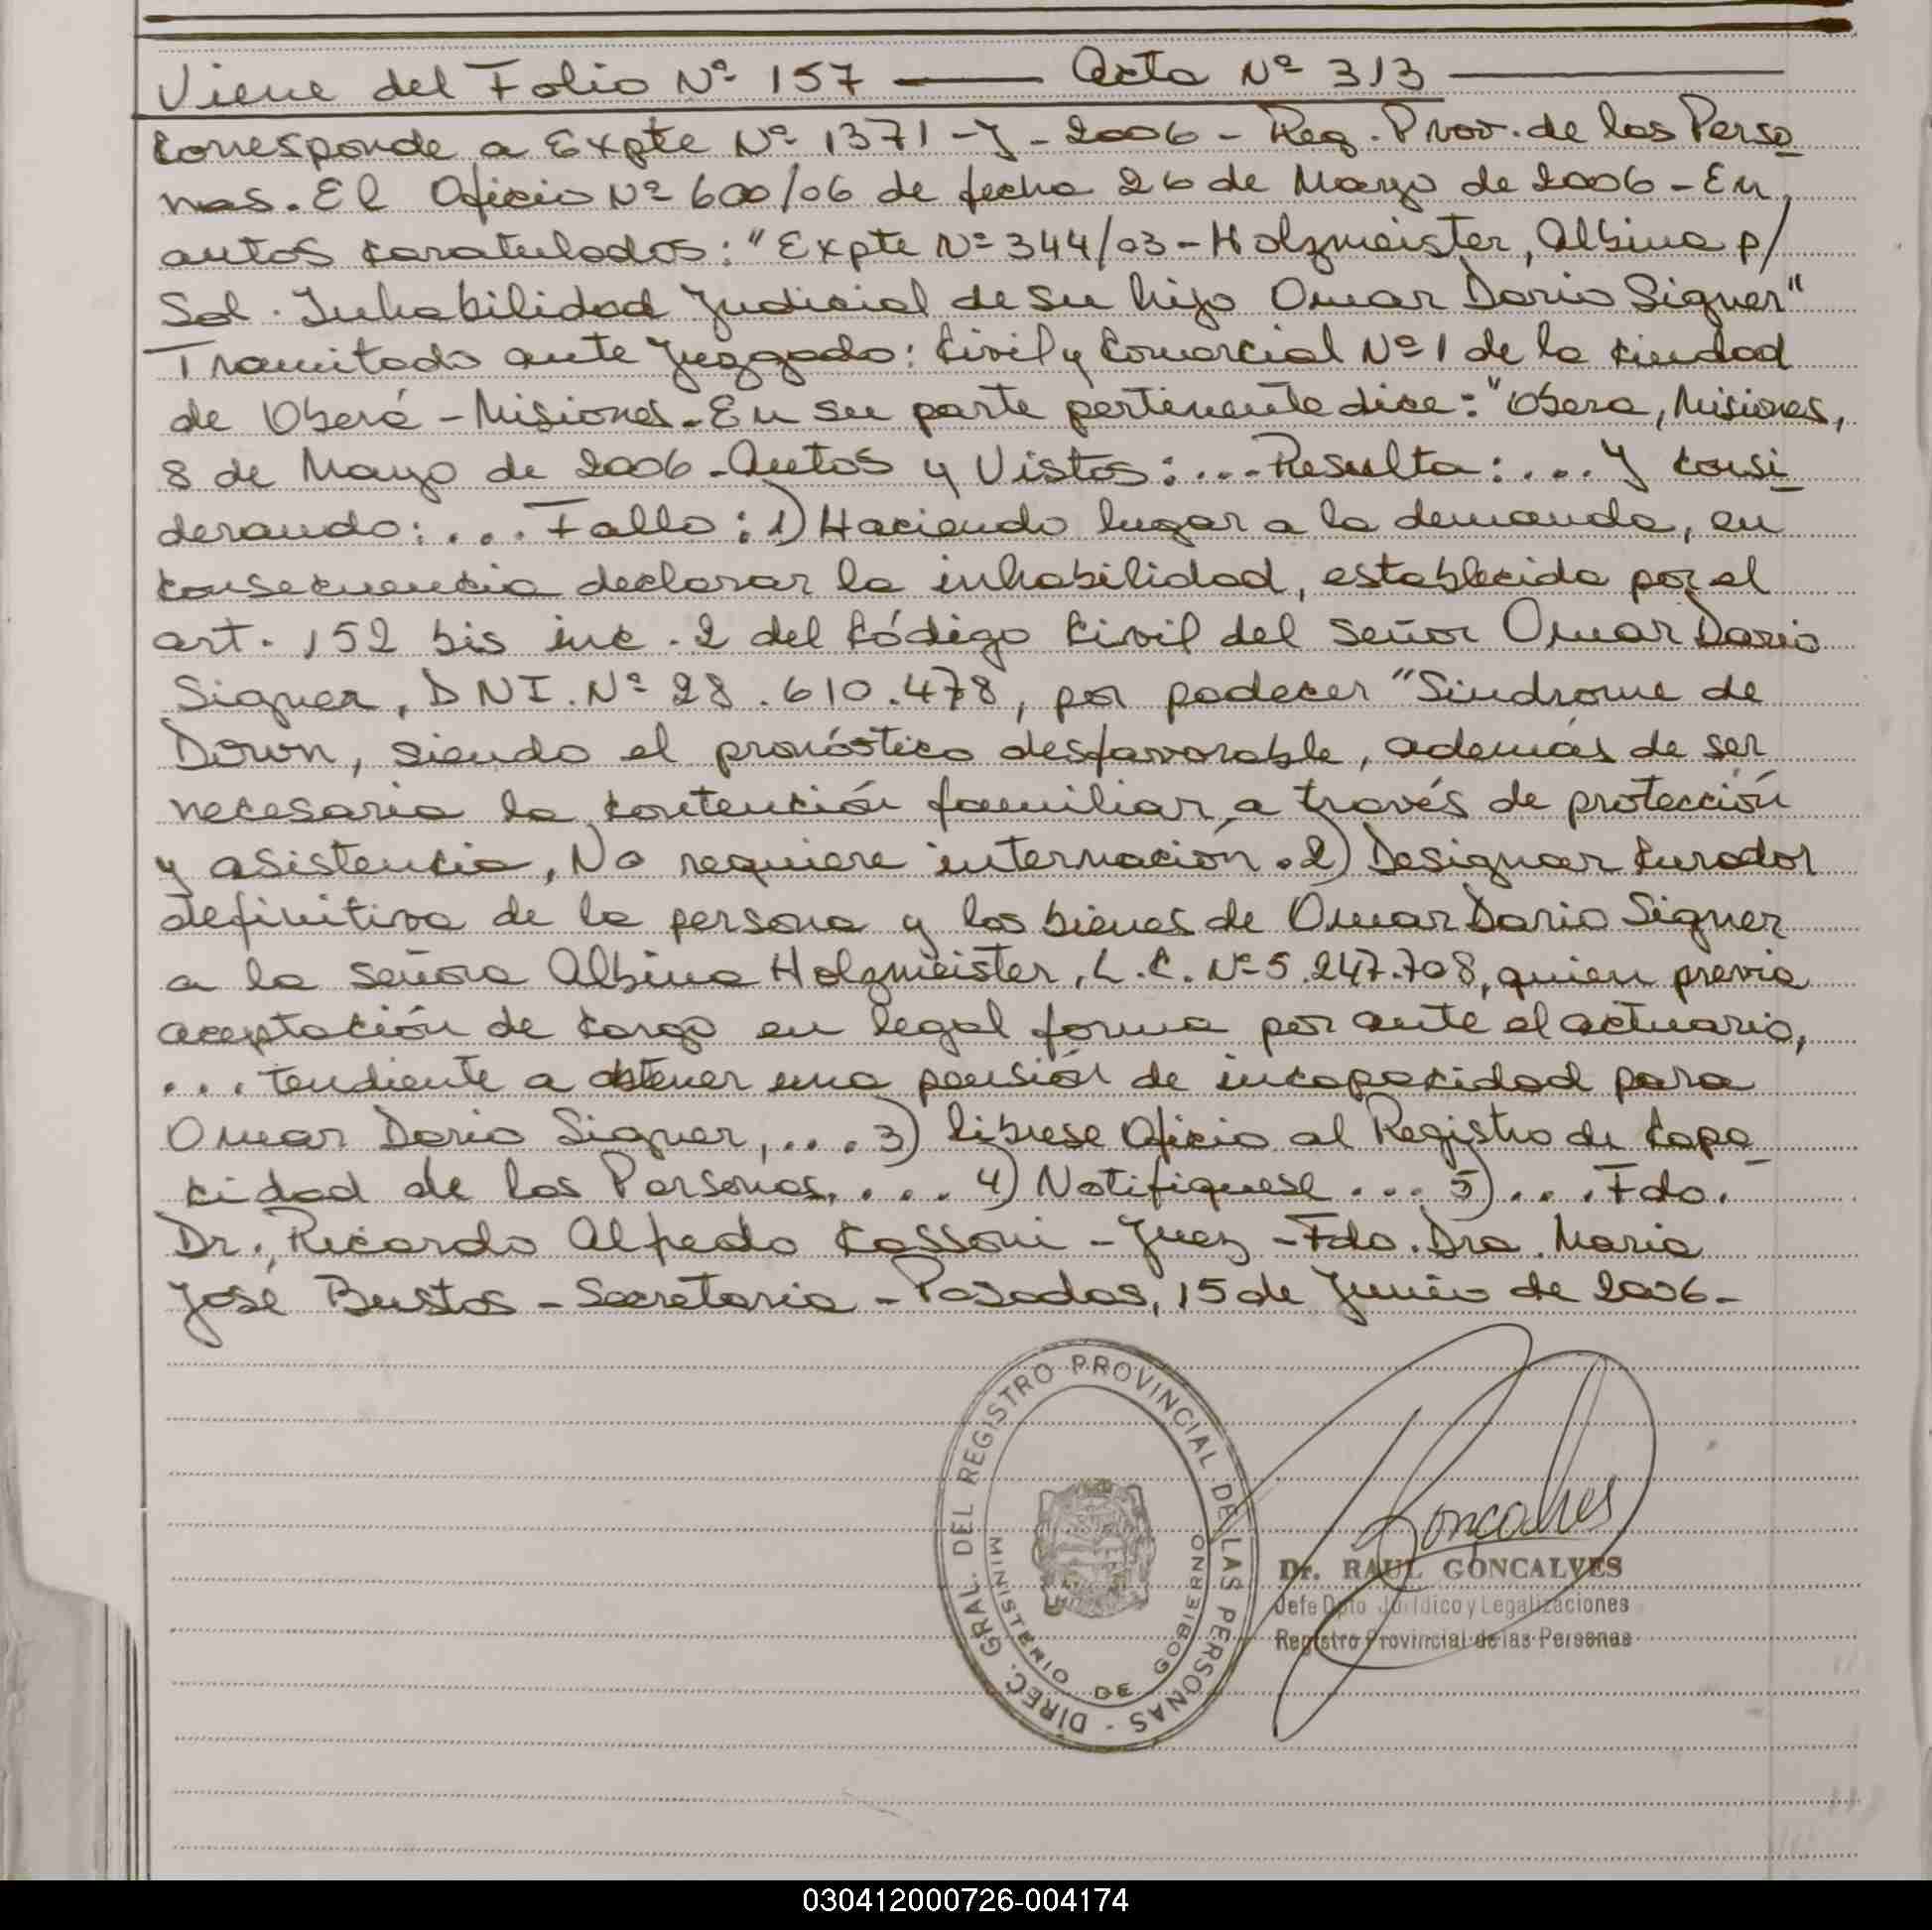 Viene del Folio Nº 157 —— Acta Nº 313 ——
Corresponde a Expte Nº 1371-J-2006 - Reg. Prov. de las Perso
nas. El Oficio Nº 600/06 de fecha 26 de Mayo de 2006 - En
autos caratulados: "Expte Nº 344/03 - Holzmeister, Albina p/
Sol. Inhabilidad Judicial de su hijo Omar Dario Signer"
Tramitado ante Juzgado: Civil y Comercial Nº 1 de la Ciudad
de Oberá - Misiones. En su parte pertinente dice: "Obera, Misiones,
8 de Mayo de 2006 - Autos y Vistos: ... Resulta: ... Y consi
derando: ... Fallo: 1) Haciendo lugar a la demanda, en
consecuencia declarar la inhabilidad, establecida por el
art. 152 bis inc. 2 del Código Civil del señor Omar Dario
Signer, DNI. Nº 28.610.478, por padecer "Sindrome de
Down, siendo el pronóstico desfavorable, además de ser
necesaria la contención familiar a través de protección
y asistencia, No requiere internación. 2) Designar Curador
definitiva de la persona y los bienes de Omar Dario Signer
a la señora Albina Holzmeister, L.C. Nº 5.247.708, quien previa
aceptación de cargo en legal forma por ante el actuario,
... tendiente a obtener una pensión de incapacidad para
Omar Dario Signer, .... 3) Librese Oficio al Registro de Capa
cidad de las Personas. ... 4) Notifiquese ... 5) ... Fdo.
Dr. Ricardo Alfredo Cassoni - Juez - Fdo. Dra. Maria
José Bustos - Secretaria - Posadas, 15 de Junio de 2006 -
DIREC. GRAL. DEL REGISTRO PROVINCIAL DE LAS PERSONAS -
MINISTERIO DE GOBIERNO
Goncalves
Dr. RAUL GONCALVES
Jefe Dpto Jurídico y Legalizaciones
Registro Provincial de las Personas
030412000726-004174